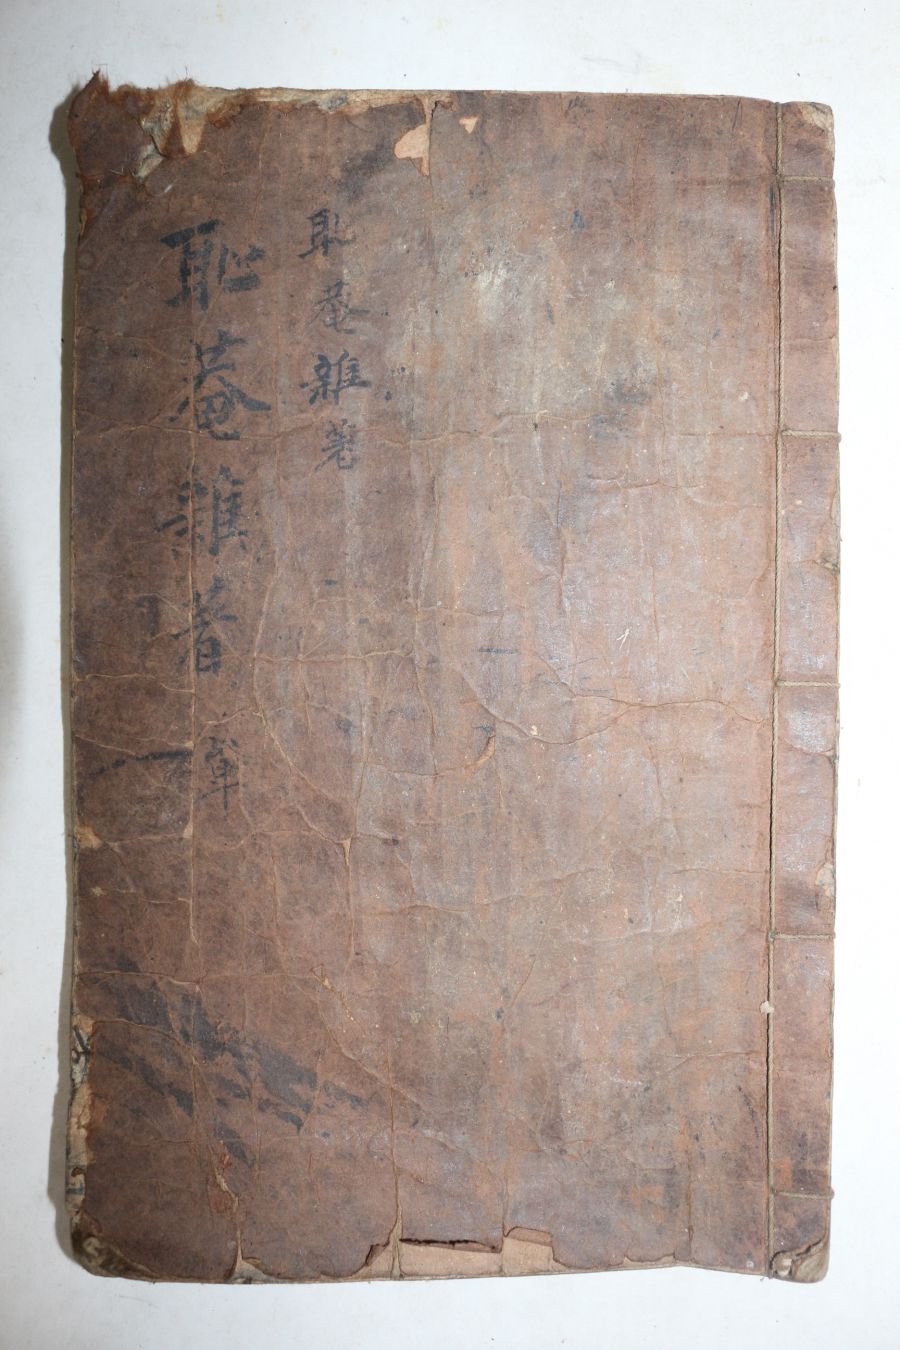 恥菴雜著
恥菴雜著 單